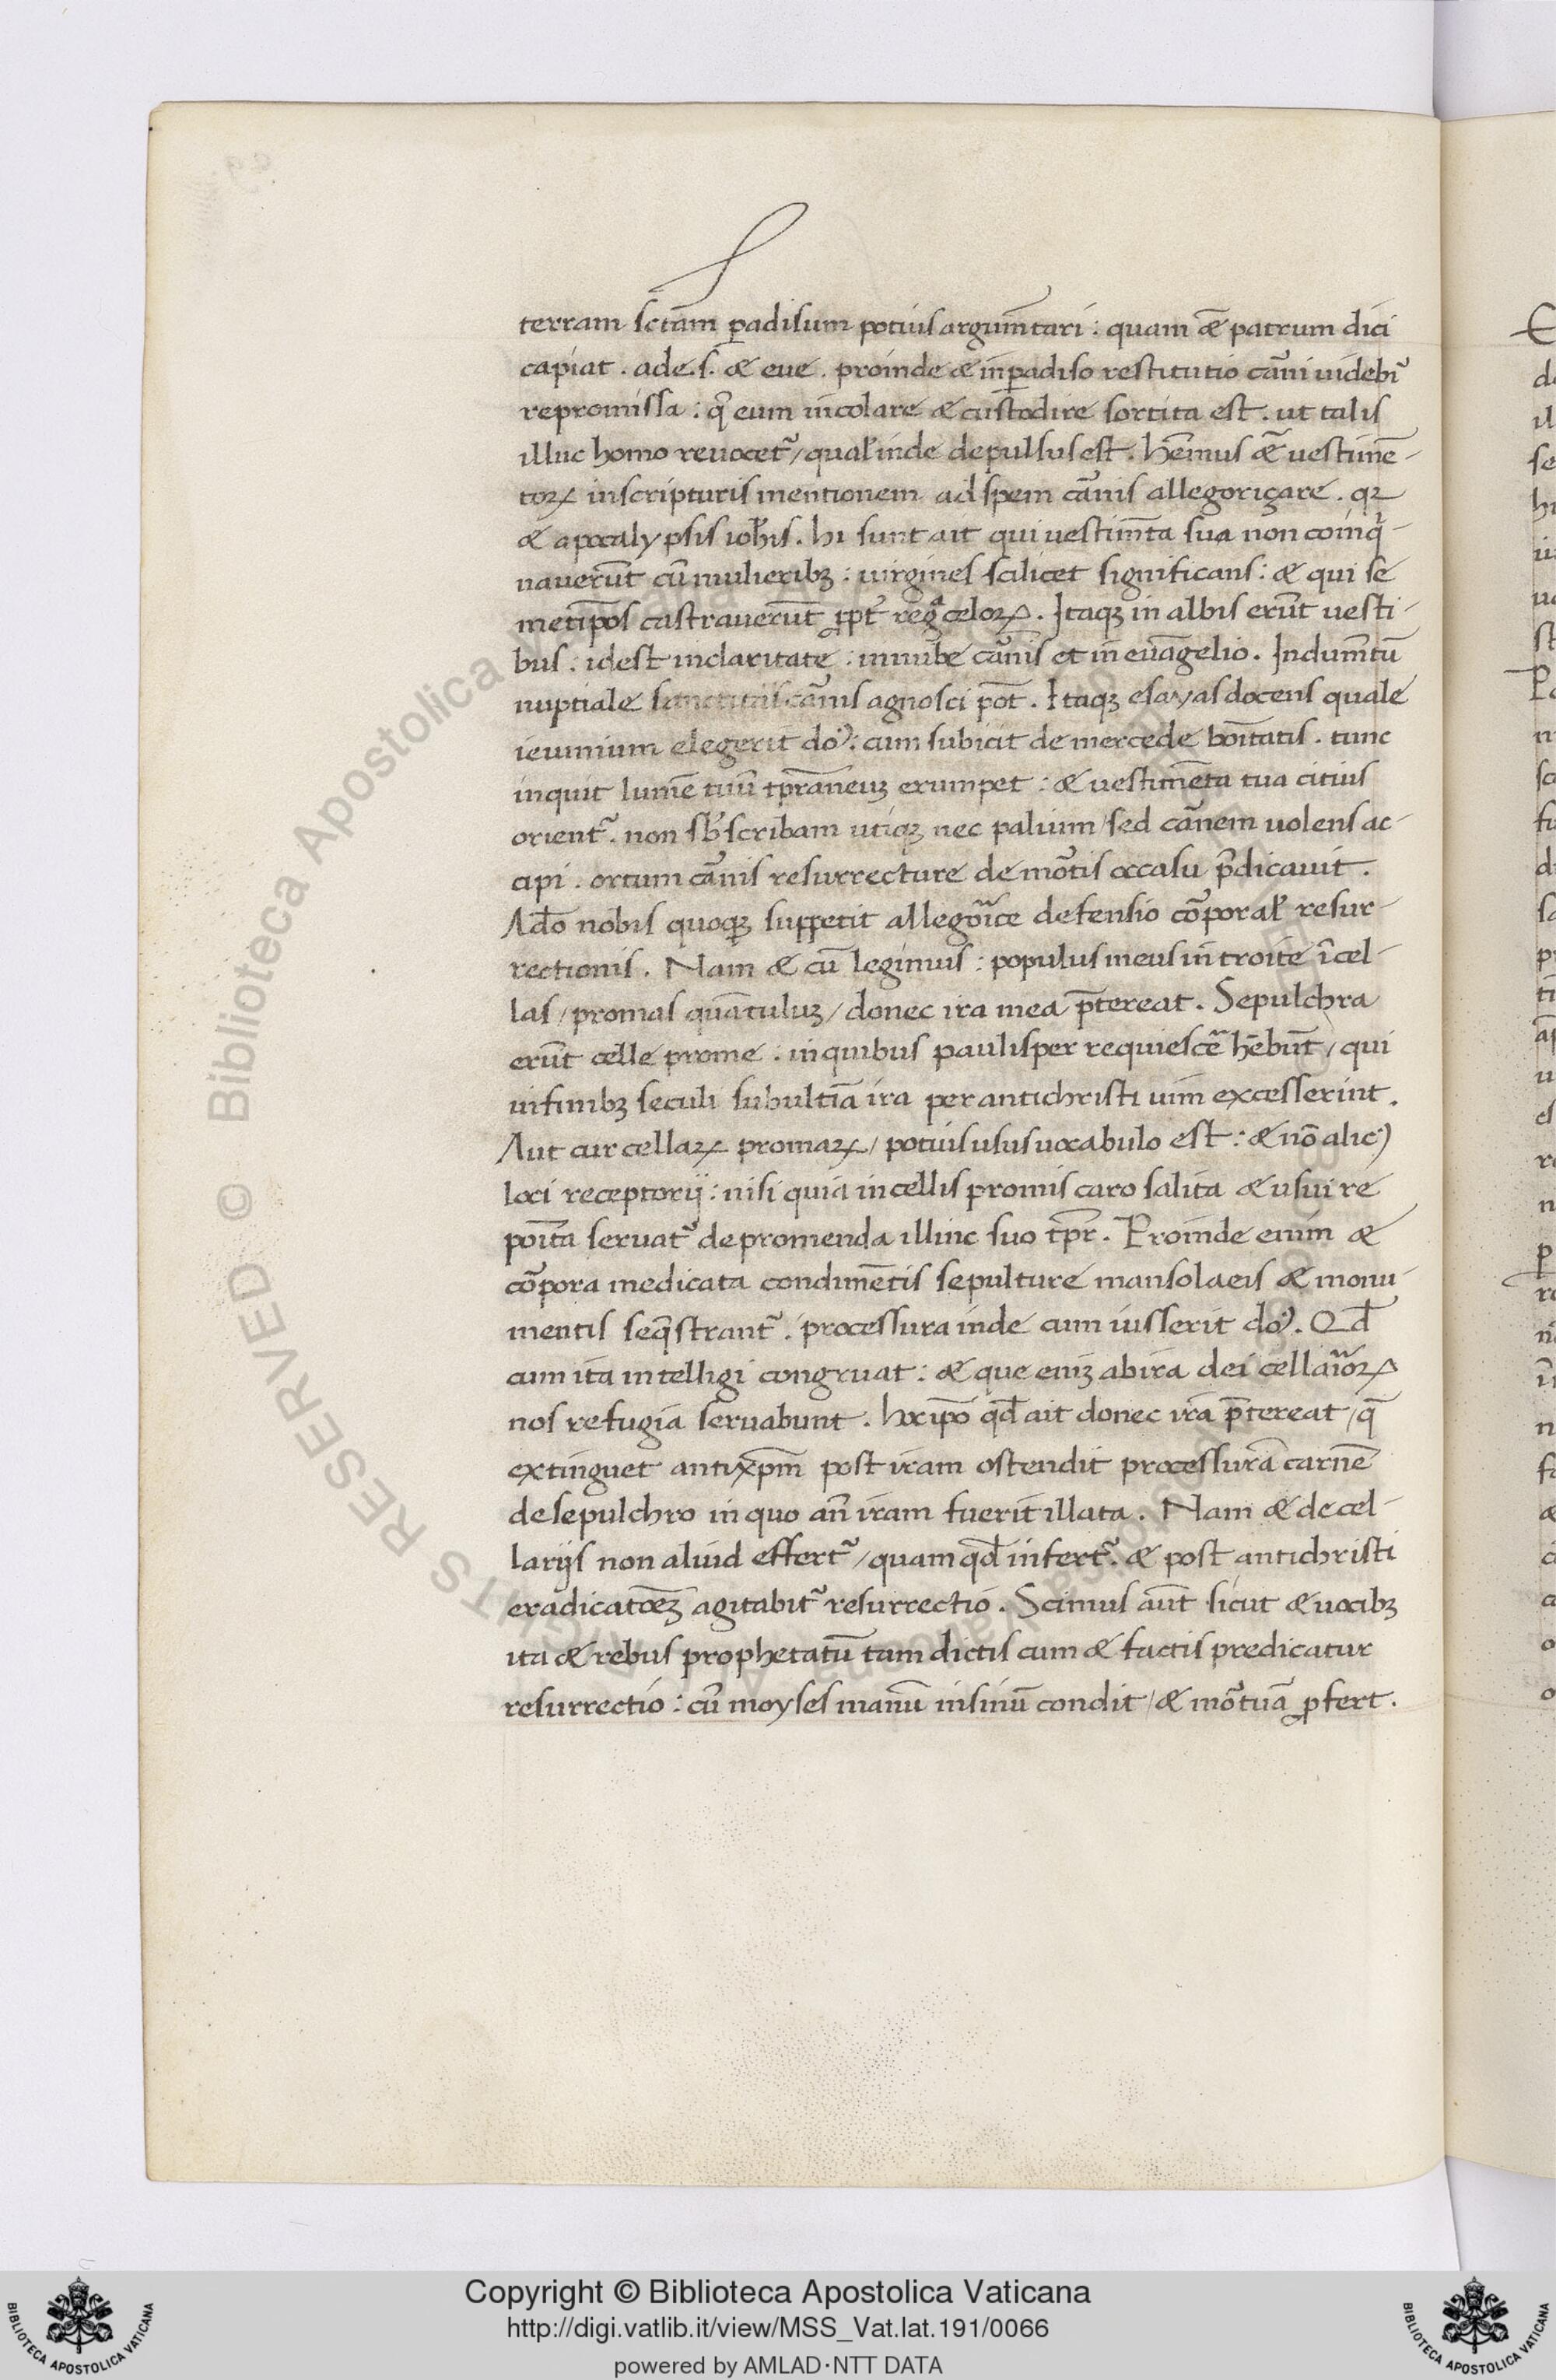 terram sctām ꝑadisum potius argum̄tari : quam ⁊̄ patrum dici
capiat . ade .s. & eue . proinde & in ꝑadiso restitutio cārni uidebr̄
repromissa : q̄ eum incolare & custodire sortita est . ut talis
illuc homo reuocet᷑ / qual᷒ inde depulsus est . hēmus & uestimē-
torꝝ in scripturis mentionem ad spem cārnis allegoriçare . qꝛ
& apocalypsis ioh̄is . hi sunt ait qui uestim̄ta sua non coinq̄-
nauerūt cū mulieribꝫ : uirgines scilicet significans : & qui se
metip̄os castrauerūt ꝓpt̄ regª celorꝝ . Itaqꝫ in albis erūt uesti-
bus : idest in claritate : innube cārnis et in euāgelio . Indum̄tū
nuptiale sanctitatis cārnis agnosci pōt . Itaqꝫ esayas docens quale
ieiunium elegerit do᷒ : cum subicit de mercede boītatis . tunc
inquit lumē tuū tp̄raneuꝫ erumpet : & uestimēta tua citius
orient᷑ . non sb̄scribam utiqꝫ nec palium / sed cārnem uolens ac-
cipi . ortum cārnis resurrecture de mōrtis occasu p̄dicauit .
Ad̄o nobis quoqꝫ suppetit allegōrice defensio cōrporal᷒ resur-
rectionis . Nam & cū legimus : populus meus introite ī cel-
las / promas quātuluꝫ / donec ira mea p̄tereat . Sepulchra
erūt celle prome : in quibus paulisper requiescē hēbūt / qui
in finibꝫ seculi sub ultīa ira per antichristi uim excesserint .
Aut cur cellarꝝ promarꝝ / potius usus uocabulo est : & nō alic᷒
loci receptorij : nisi quia in cellis promis caro salita & usui re
poīta seruat᷑ depromenda illinc suo tp̄r . Proinde enim &
cōrpora medicata condimētis sepulture mansolaeis & monu-
mentis seq̄strant᷑ . processura inde cum iusserit do᷒ . Qd̄
cum ita intelligi congruat : & que eniꝫ ab ira dei cellaīorꝝ
nos refugia seruabunt . hoc ip̄o qd̄ ait donec ira p̄tereat / q̄
extinguet antix̄pm̄ post iram ostendit processurā carnē
de sepulchro in quo an̄ iram fuerit illata . Nam & de cel-
larijs non aliud effert᷑ / quam qd̄ infert᷑ . & post antichristi
eradicatōeꝫ agitabit᷑ resurrectio . Scimus aūt sicut & uocibꝫ
ita & rebus prophetatū tam dictis cum & factis predicatur
resurrectio : cū moyses manū in sinū condit / & mōrtuā ꝓfert .
Copyright © Biblioteca Apostolica Vaticana
http://digi.vatlib.it/view/MSS_Vat.lat.191/0066
powered by AMLAD·NTT DATA